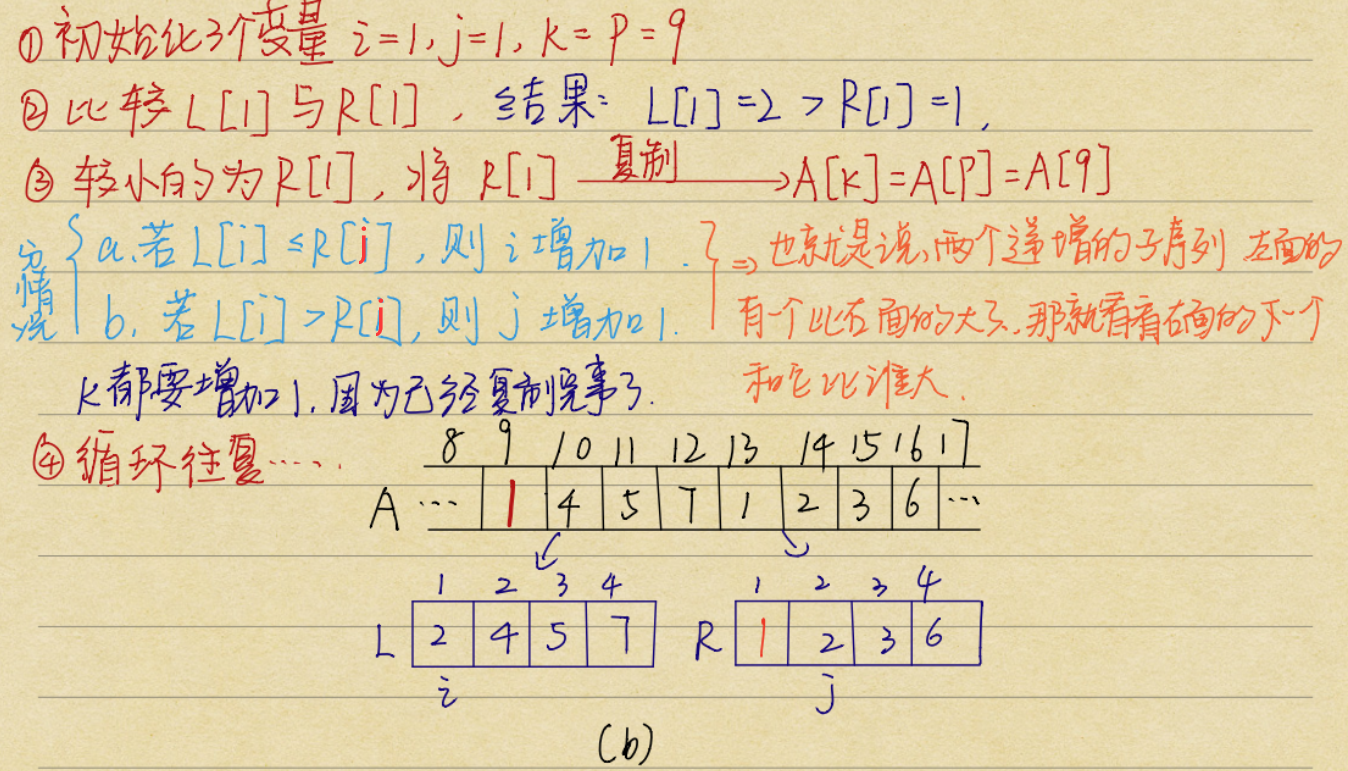 ①初始化3个变量 i=1,j=1,k=P=9
②比较L[1]与R[1],结果:L[1]=2>R[1]=1,
③较小的为R[1],将R[1] 复制 →A[k]=A[P]=A[9]
分情况 { a.若L[i]≤R[j],则i增加1.
b.若L[i]>R[j],则j增加1.
} ⇒也就是说,两个递增的子序列 左面的
有一个比右面的大了,那就看看右面的下一个
和它比谁大.
k都要增加1,因为已经复制完事了.
④循环往复……
8 9 10 11 12 13 14 15 16 17
A … 1 4 5 7 1 2 3 6 …
1 2 3 4 1 2 3 4
L 2 4 5 7 R 1 2 3 6
i j
(b)